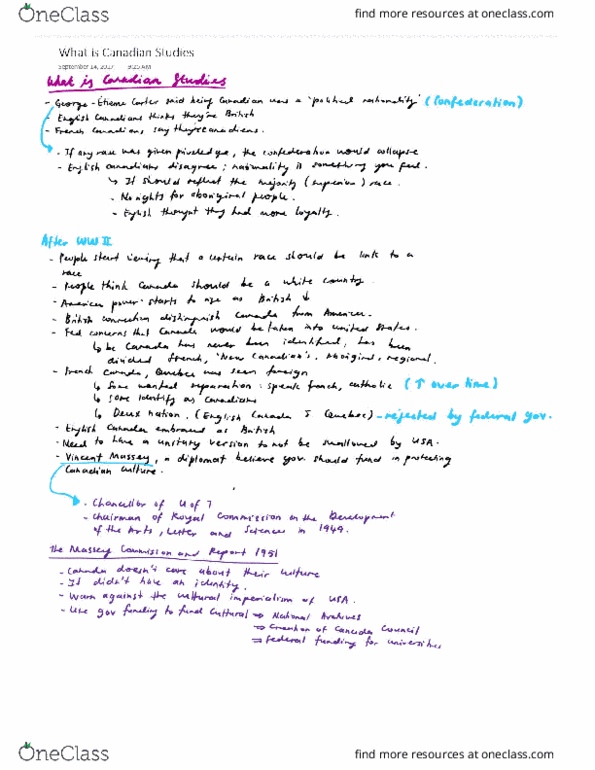 OneClass
find more resources at oneclass.com
What is Canadian Studies
September 14, 2017 9:20 AM
What is Canadian Studies
- George-Etiene Carter said being Canadian was a 'political nationality' (Confederation)
- English Canadians thinks they're British
- French Canadians, say they're canadiens.
- If any race was given priveledge, the confederation would collapse
- English canadians disagree; nationality is something you feel.
↳ It should reflect the majority (superior) race.
- No rights for aboriginal people.
- English thought they had more loyalty.
After WW II
- People start viewing that a certain race should be link to a
race
- People think Canada should be a white country.
- American power starts to rise as British ↓
- British connection distinguish Canada from America.
- Fed concerns that Canada would be taken into united states.
↳ bc Canada has never been identified; has been
divided French, 'New Canadian's, Aboriginal, regional.
- French Canada, Quebec was seen foreign
↳ Some wanted separation: speak french, catholic (↑ over time)
↳ some identify as Canadians
↳ Deux nation. (English Canada & Quebec) - rejected by federal gov.
- English Canada embraced as British
- Need to have a unitary version to not be swallowed by USA.
- Vincent Massey, a diplomat believe gov. should fund in protecting
Canadian culture.
- Chancellor of U of T
- Chairman of Royal Commission on the Development
of the Arts, Letter and Sciences in 1949.
The Massey Commission and Report 1951
- Canada doesn't care about their culture
- It didn't have an identity.
- Warn against the cultural imperialism of USA.
- Use gov funding to fund cultural → National Archives
→ Creation of Canada Council
→ federal funding for universities
OneClass
find more resources at oneclass.com